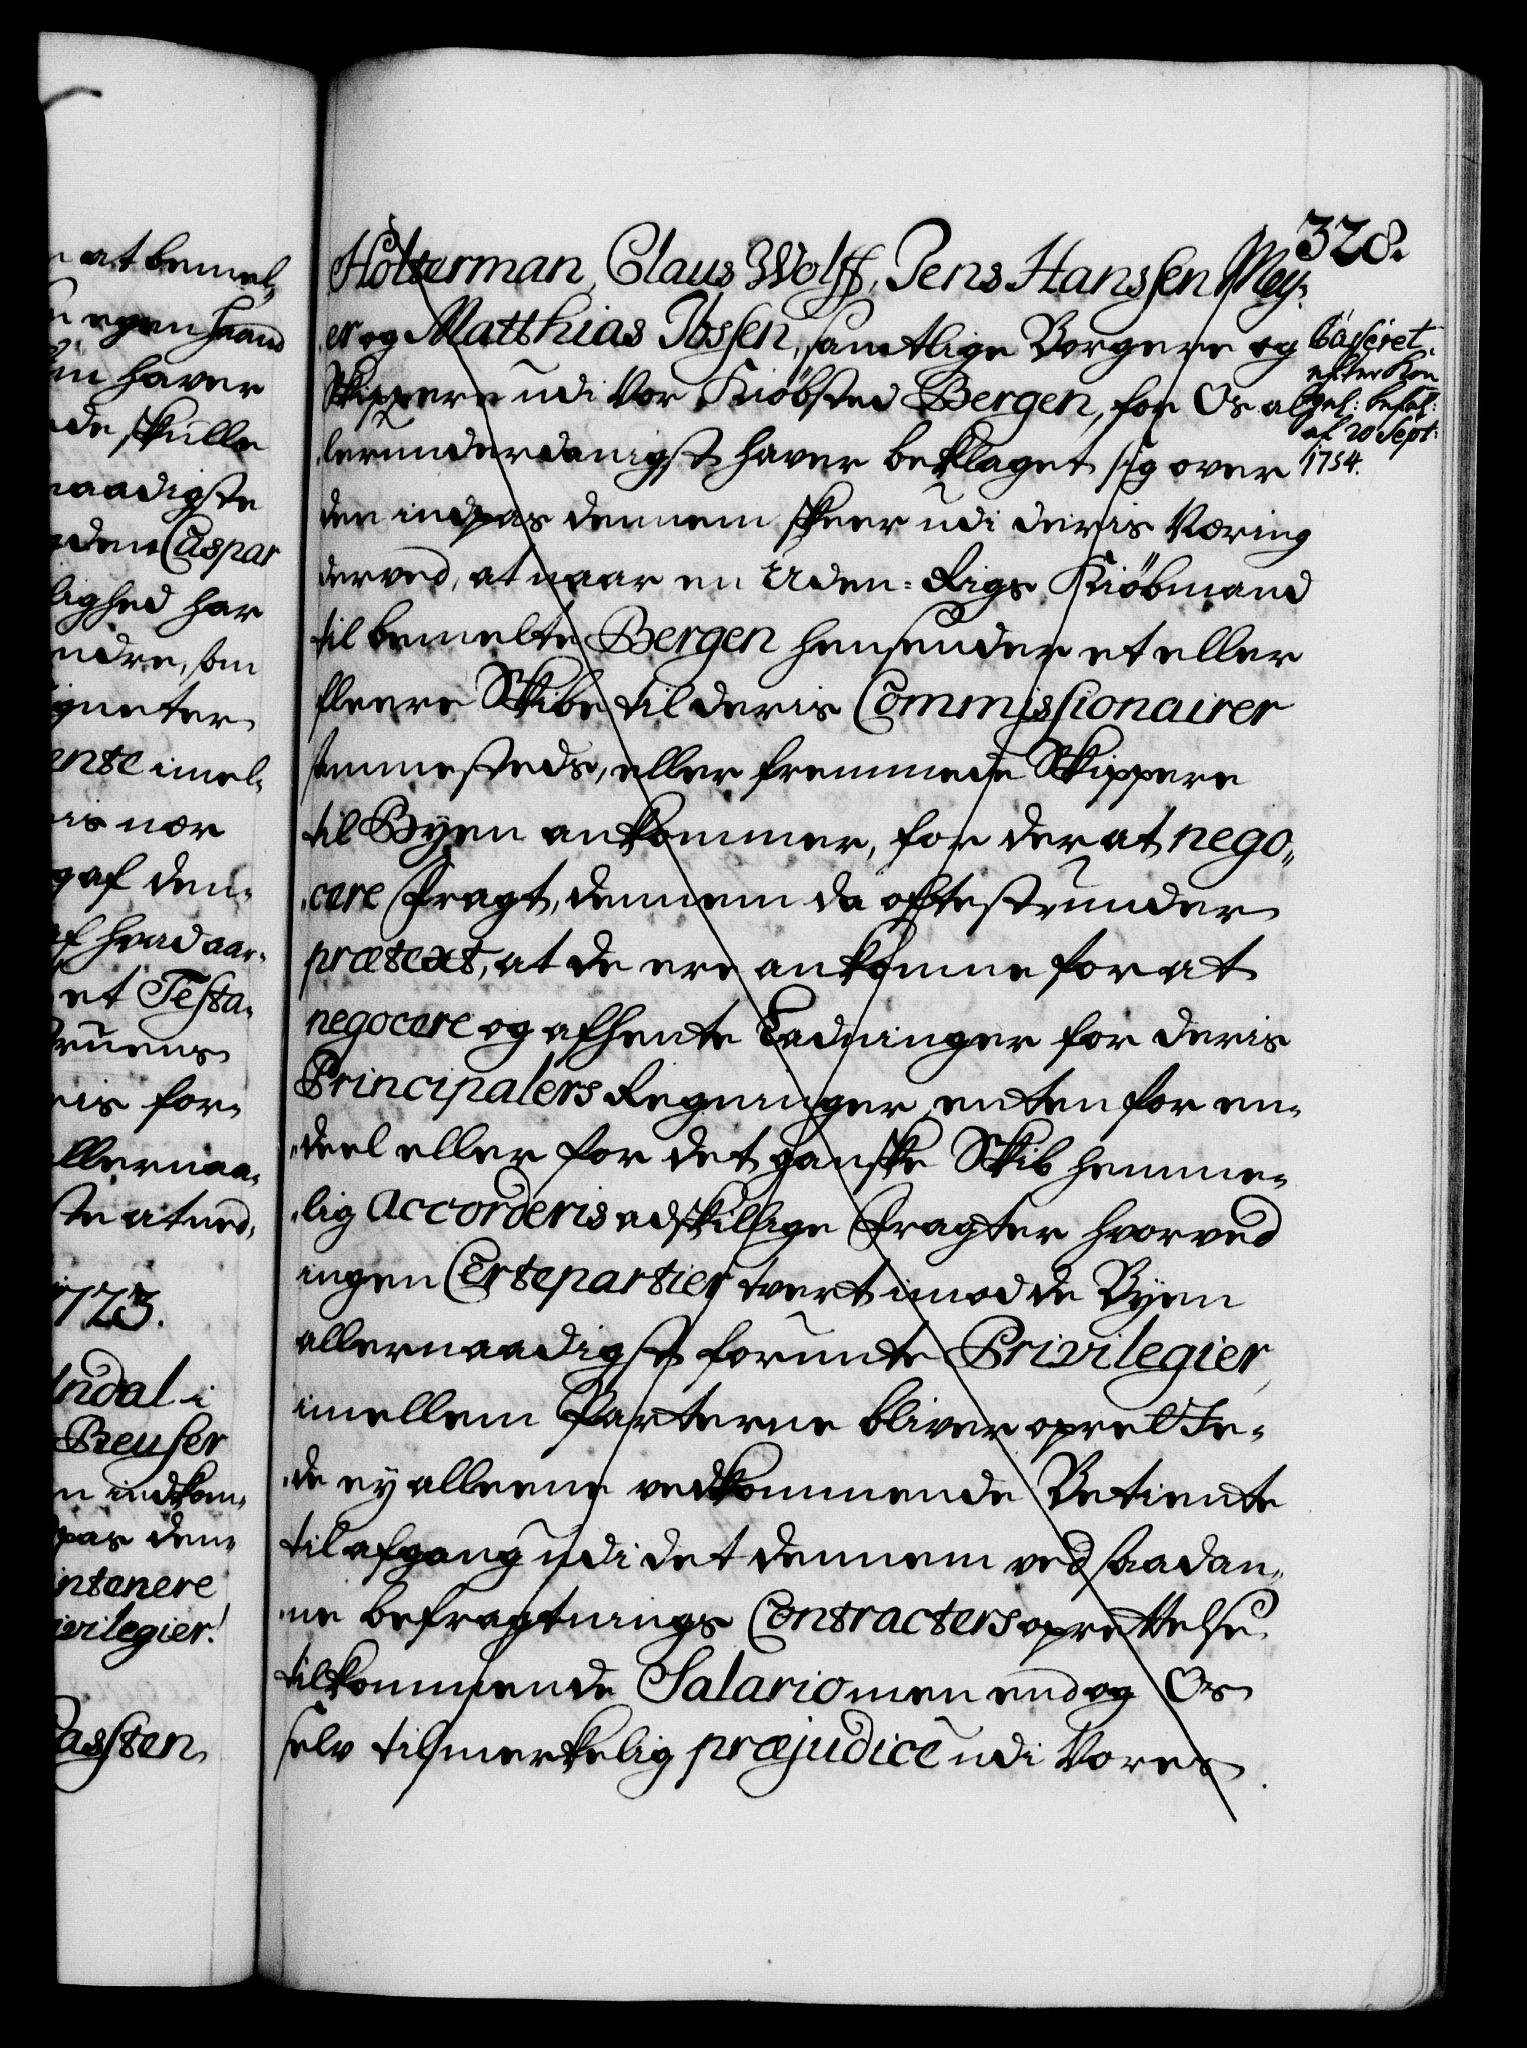 at bemel-
egen haand
haver
de skulle
naadigste
den Caspar
lighed har
ndre, som
igneter
ente imel-
is nær
g af den-
af hvad aar-
et Testa-
Fruens
is for-
llernaa-
ste at ved-
1723.
indal i
Beyser
n indkom-
pas den-
intenere
ivilegier!
Carsten
328.
Holterman, Claus Wolff, Jens Hanssen Mey-
er og Matthias Ibsen, samtlige Borgere og
Skippere udi Vor Kiöbsted Bergen, for Os al-
lerunderdanigst haver beklaget sig over
den indpas dennem skeer udi deris Næring
derved, at naar en Uden-Rigs Kiöbmand
til bemelte Bergen hensender et eller
fleere Skibe til deris Commissionairer
sammesteds, eller fremmede Skippere
til Byen ankommer, for der at nego-
cere Fragt, dennem da oftest under
prætext, at de ere ankomne for at
negocere og afhente Ladninger for deris
Principalers Regninger, enten for en-
deel eller for det gandske Skib hemme-
lig accorderis adskillige Fragter hvorved
ingen Certepartier tvert imod de Byen
allernaadigst forunte Privilegier
imellem Parterne bliver oprettede-
de ey alleene vedkommende Betiente
til afgang udi det dennem ved saadan-
ne befragtnings Contracters oprettelse
tilkommende Salario men endog Os
selv til merkelig præjudice udi Vores
Casseret
efter Kon
gel: befal:
af 20 Sept:
1754.